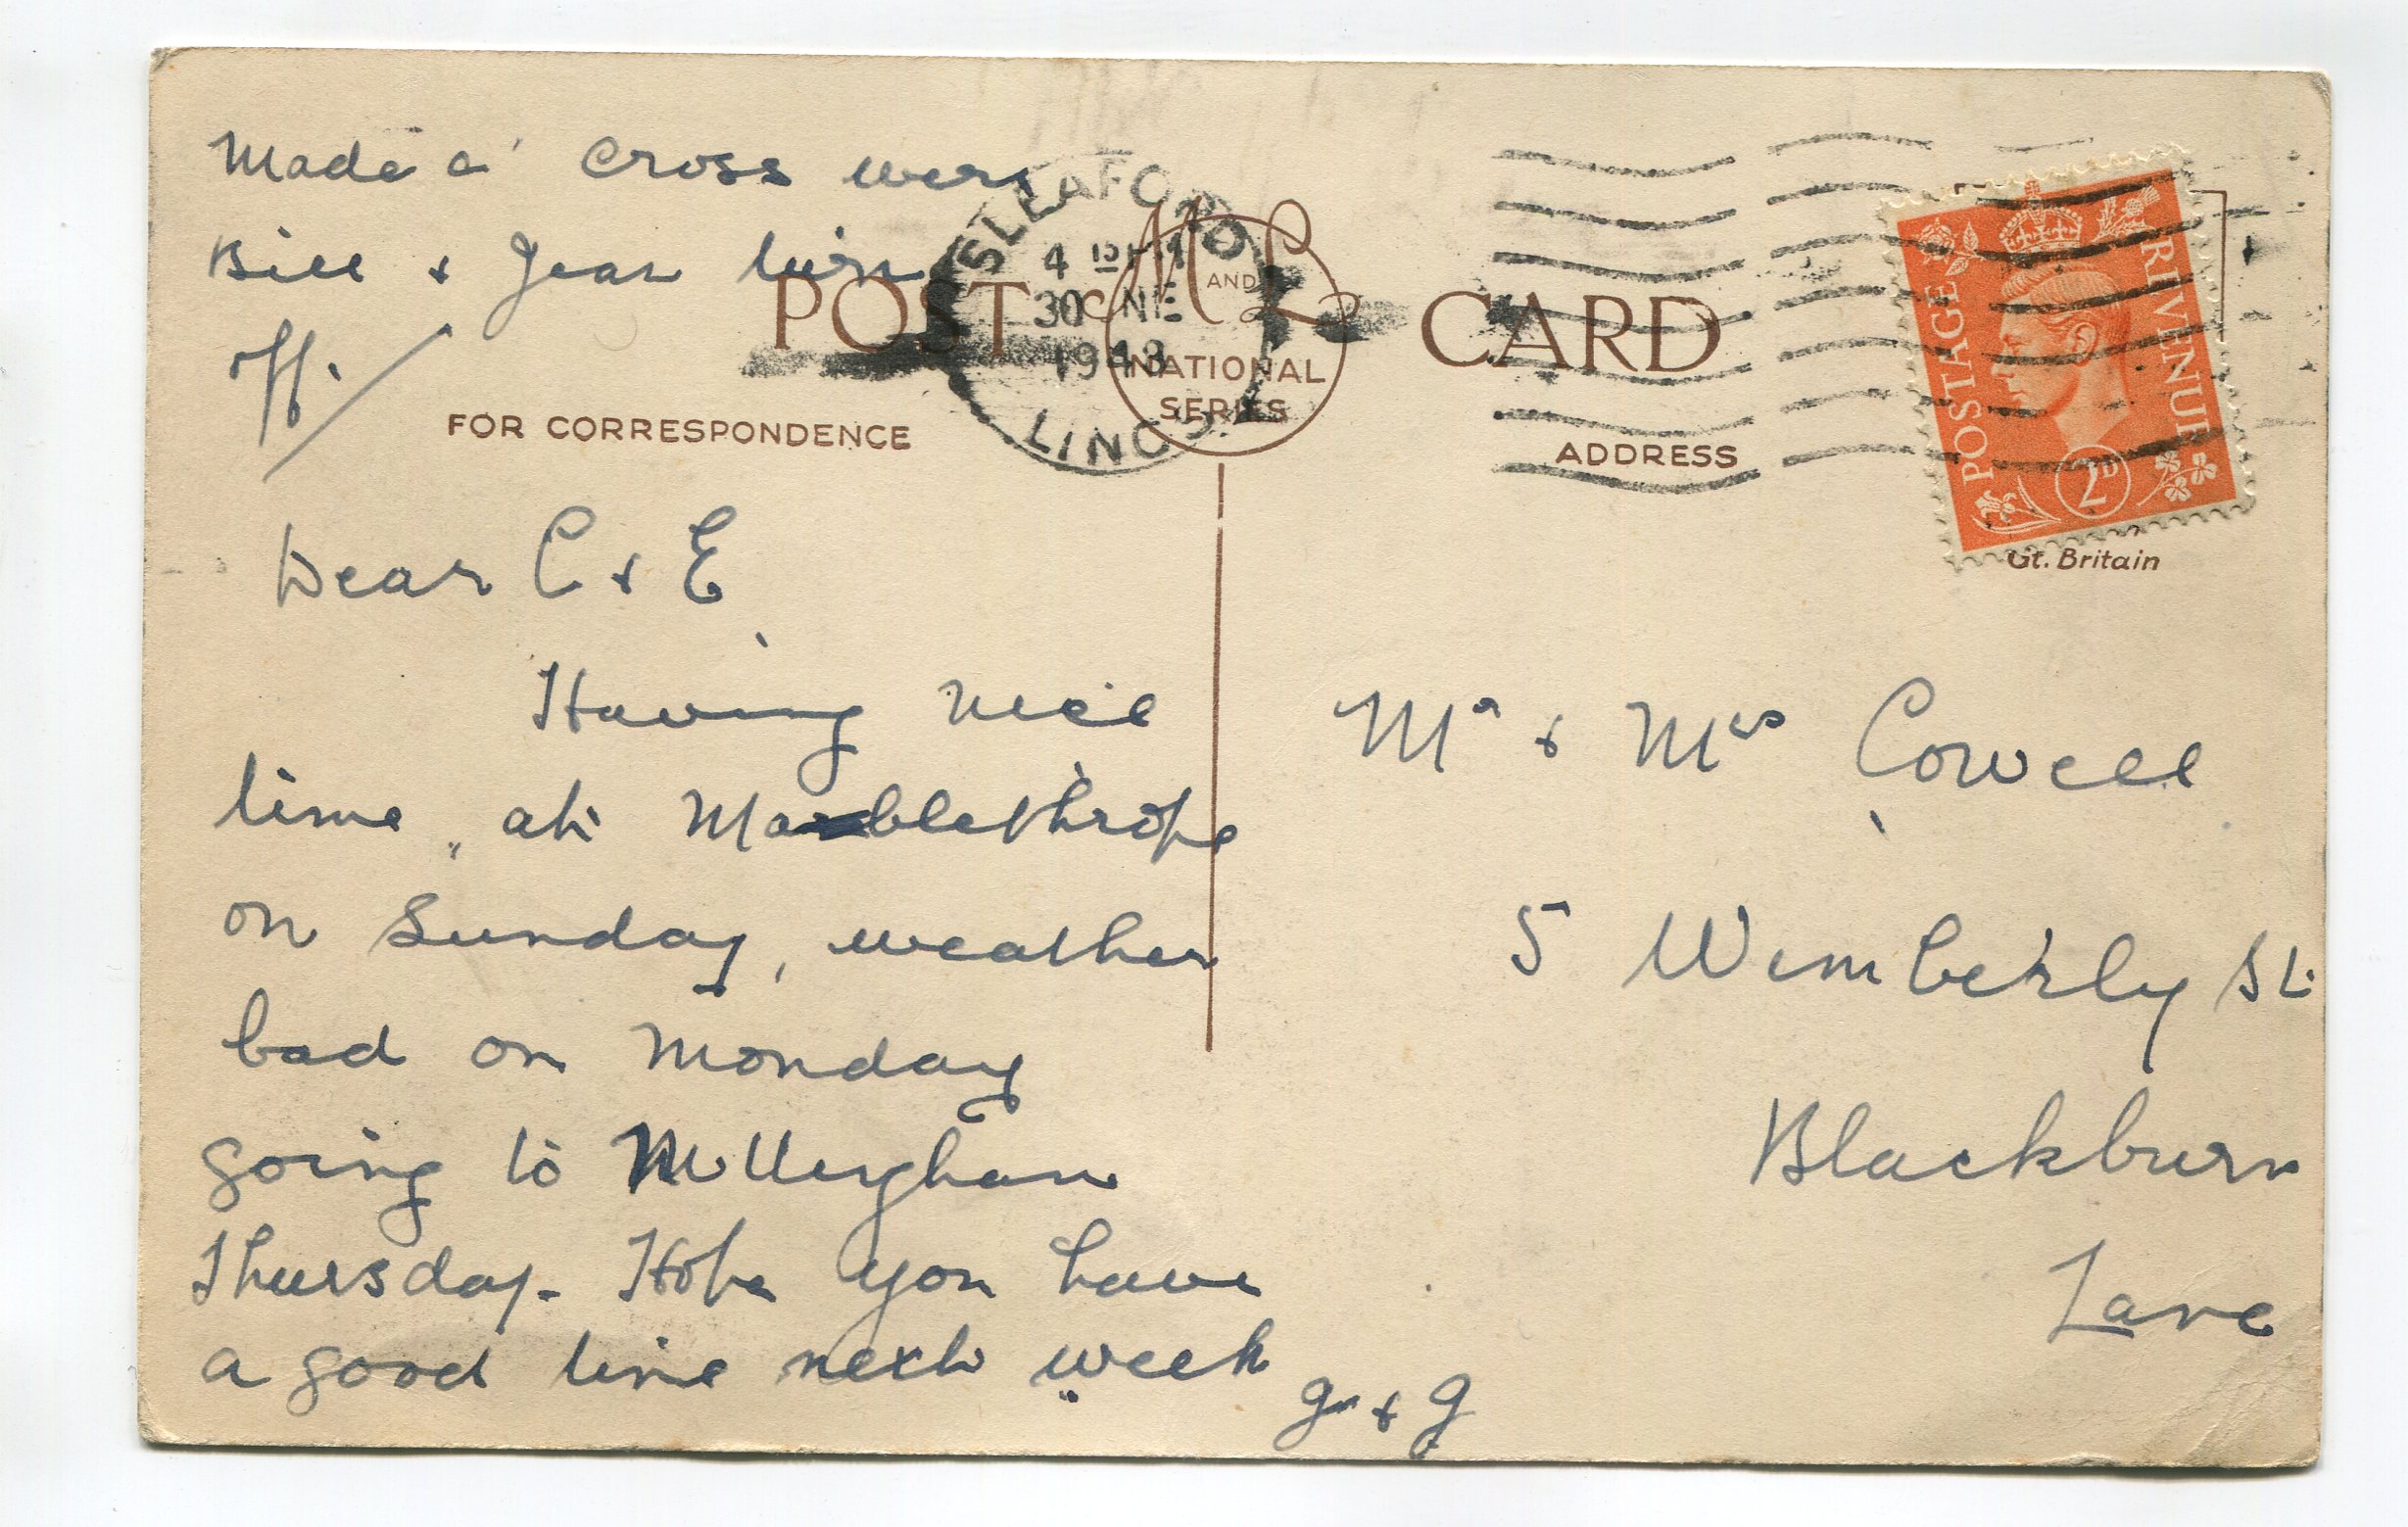 Made a cross were
Bill & Jean turn
off.
POST CARD
M AND L
NATIONAL
SERIES
SLEAFORD
4 15 PM
30 NE
1948
LINCS
FOR CORRESPONDENCE
ADDRESS
POSTAGE
REVENUE
2D
Gt. Britain
Dear C & E
Having nice
time at Mablethrope
on Sunday, weather
bad on Monday
going to
Thursday. Hope you have
a good time next week
G & G
Mr & Mrs Cowell
5 Wimberly St.
Blackburn
Lanc